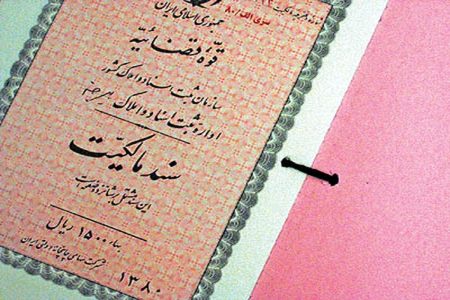 جمهوری اسلامی ایران
سری الف/۸۰
قوّه قضائیّه
سازمان ثبت اسناد و املاک کشور
اداره ثبت اسناد و املاک
سند مالکیّت
این سند مشتمل بر شانزده صفحه است
بهاء ۱۵۰۰ ریال
شرکت سهامی چاپخانه دولتی ایران
۱۳۸۰